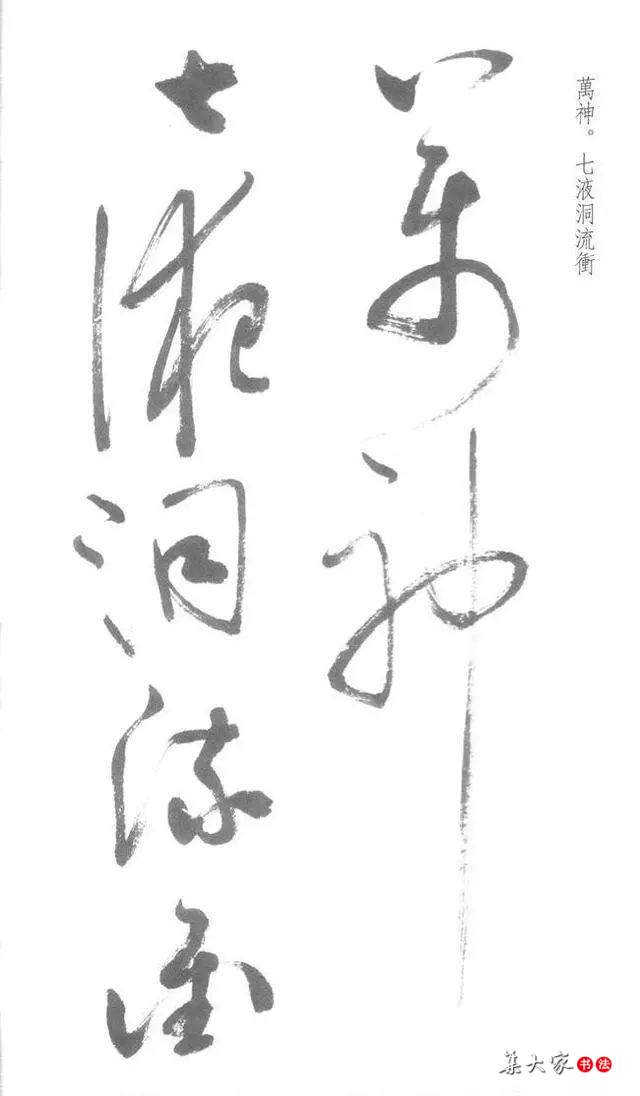 萬神。七液洞流衝
萬神
七液洞流衝
集大家书法